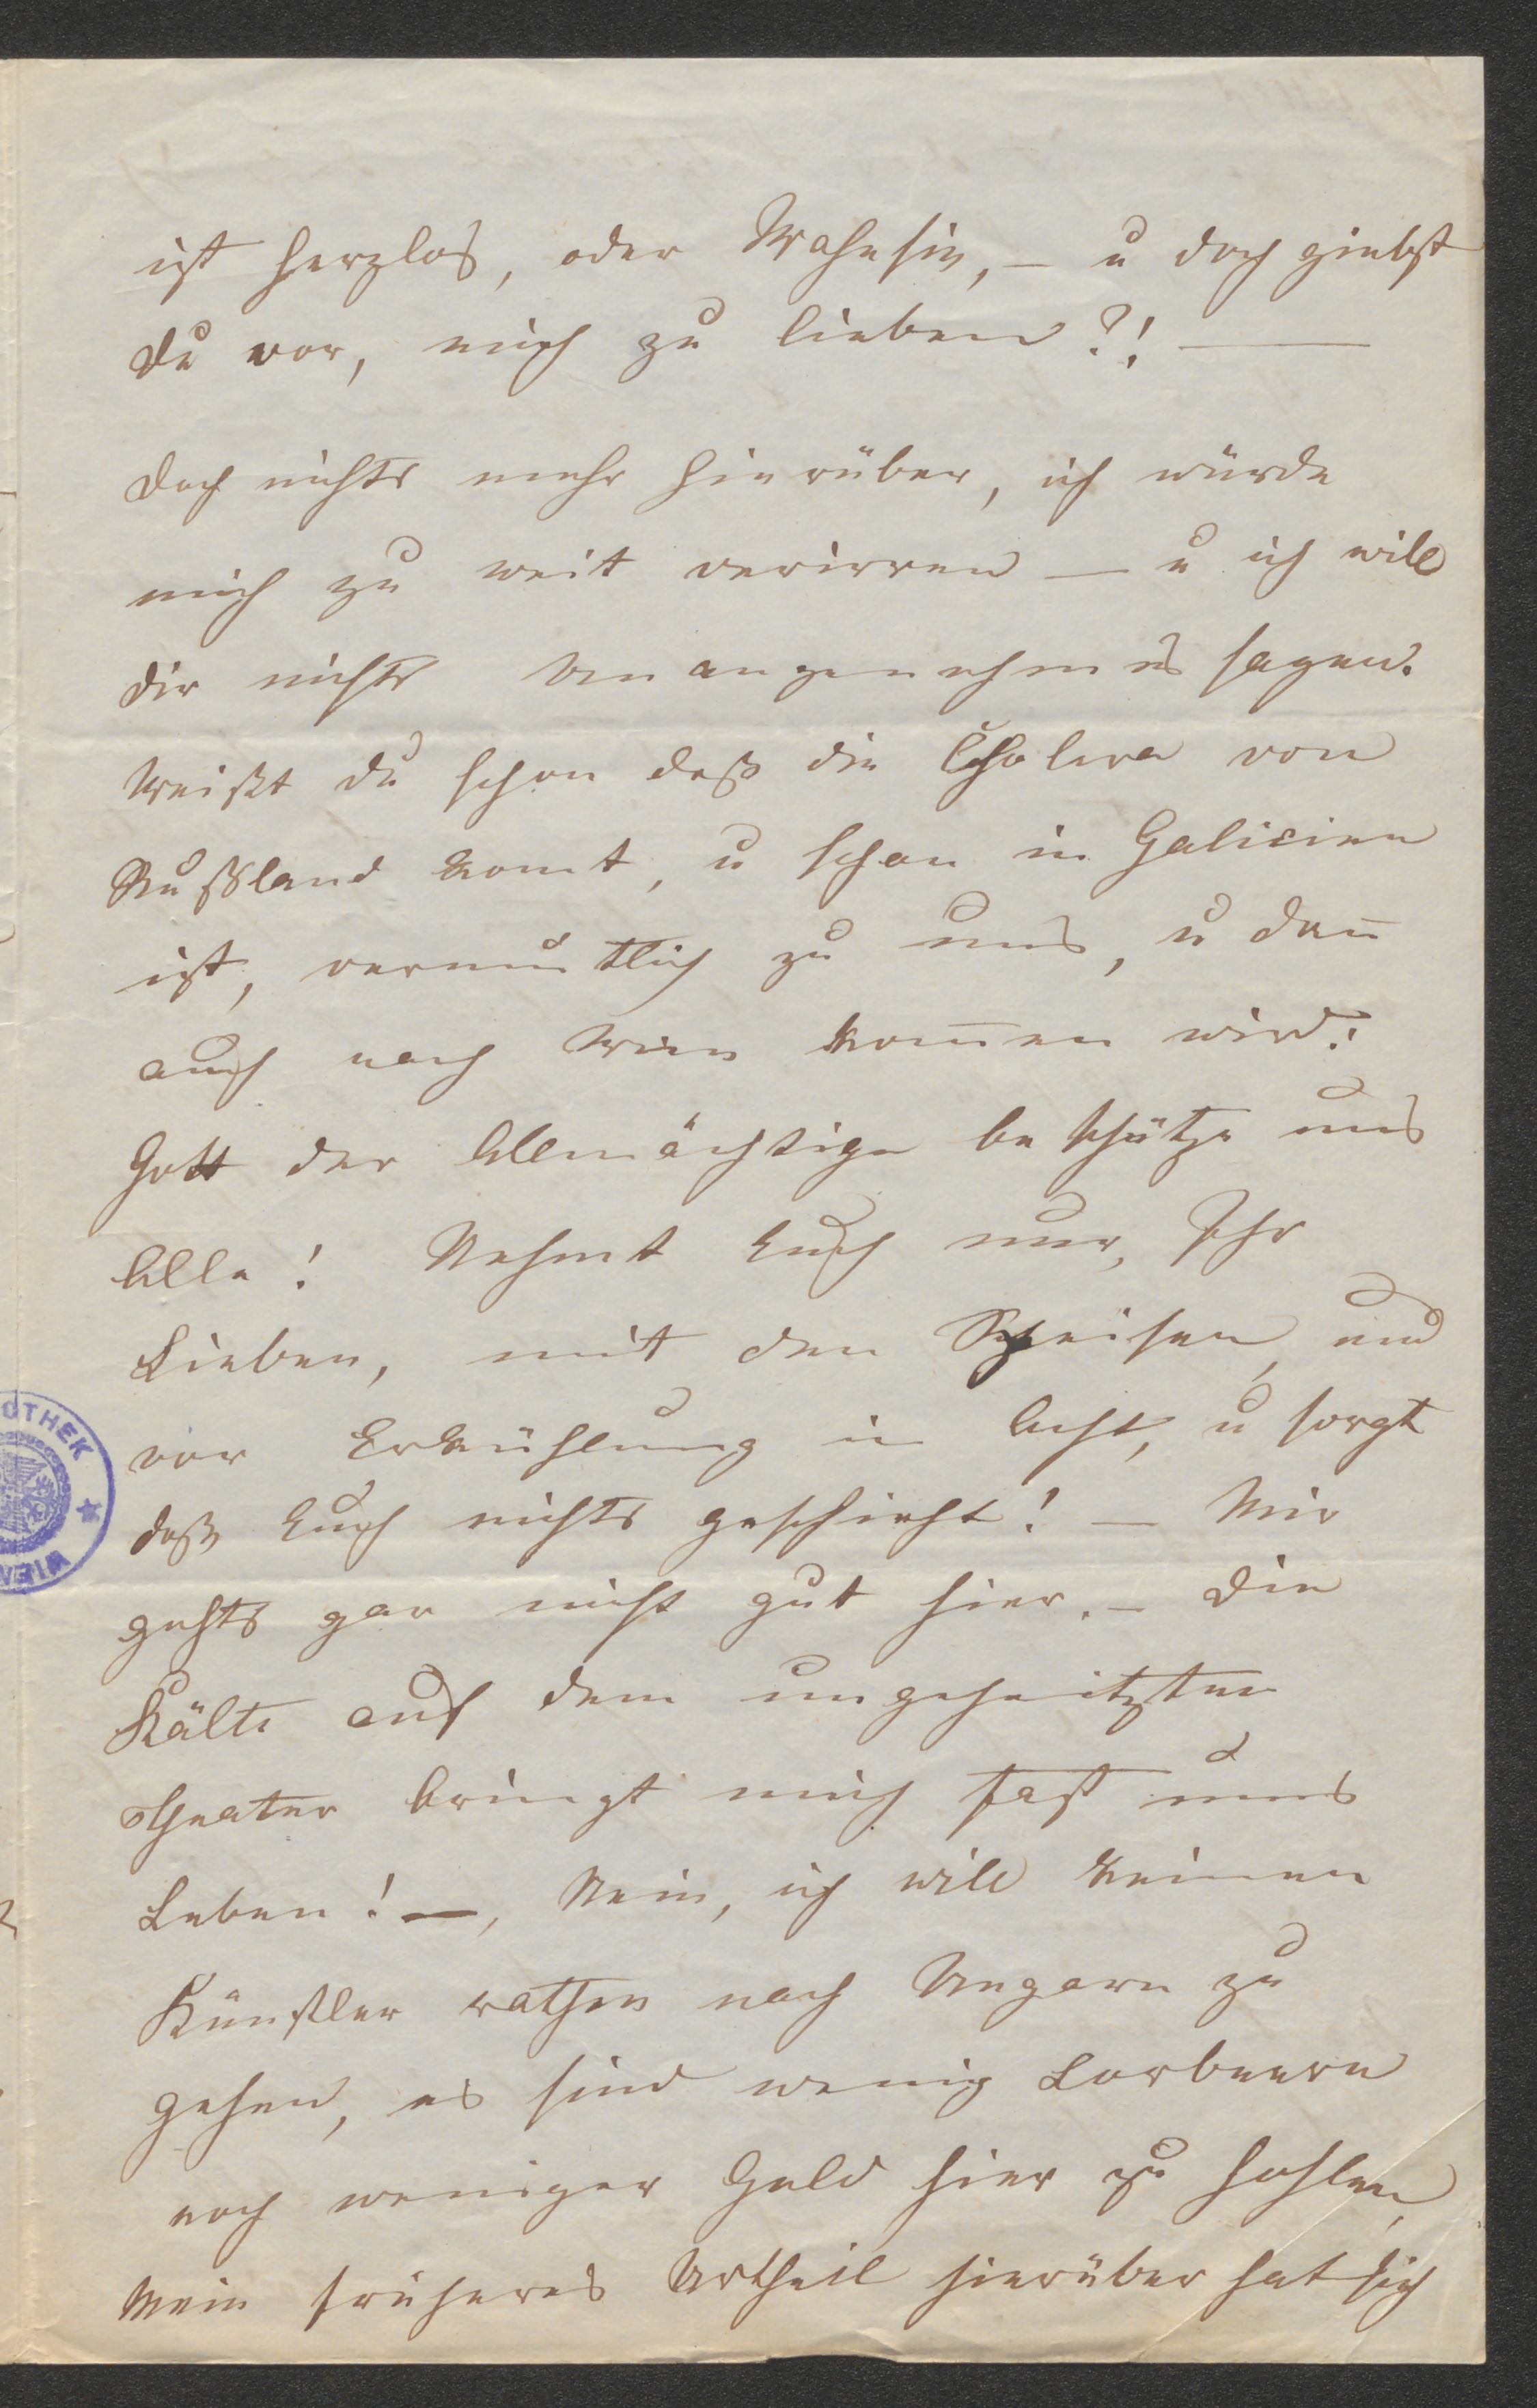 ist herzlos, oder Wahnsin̄, – u doch giebst
Du vor, mich zu lieben?! —
Doch nichts mehr hierüber, ich würde
mich zu weit verirren – u ich will
Dir nichts Unangenehmes sagen.
Weißt Du schon daß die Cholera von
Rußland komt, u schon in Galicien
ist, vermutlich zu uns, u dan̄
auch nach Wien kom̄en wird.
Gott der Allmächtige beschütze uns
Alle! Nehmt Euch nur, Ihr
Lieben, mit den Speisen, und
vor Erkühlung in Acht, u sorgt
daß Euch nichts geschieht! – Mir
gehts gar nicht gut hier. – Die
Kälte auf dem ungeheitzten
Theater bringt mich fast ums
Leben! –, Nein, ich will keinen
Künstler rathen nach Ungarn zu
gehen, es sind wenig Lorbeern
noch weniger Geld hier zu hohlen,
Mein früheres Urtheil hierüber hat sich
OTHEK
WIEN